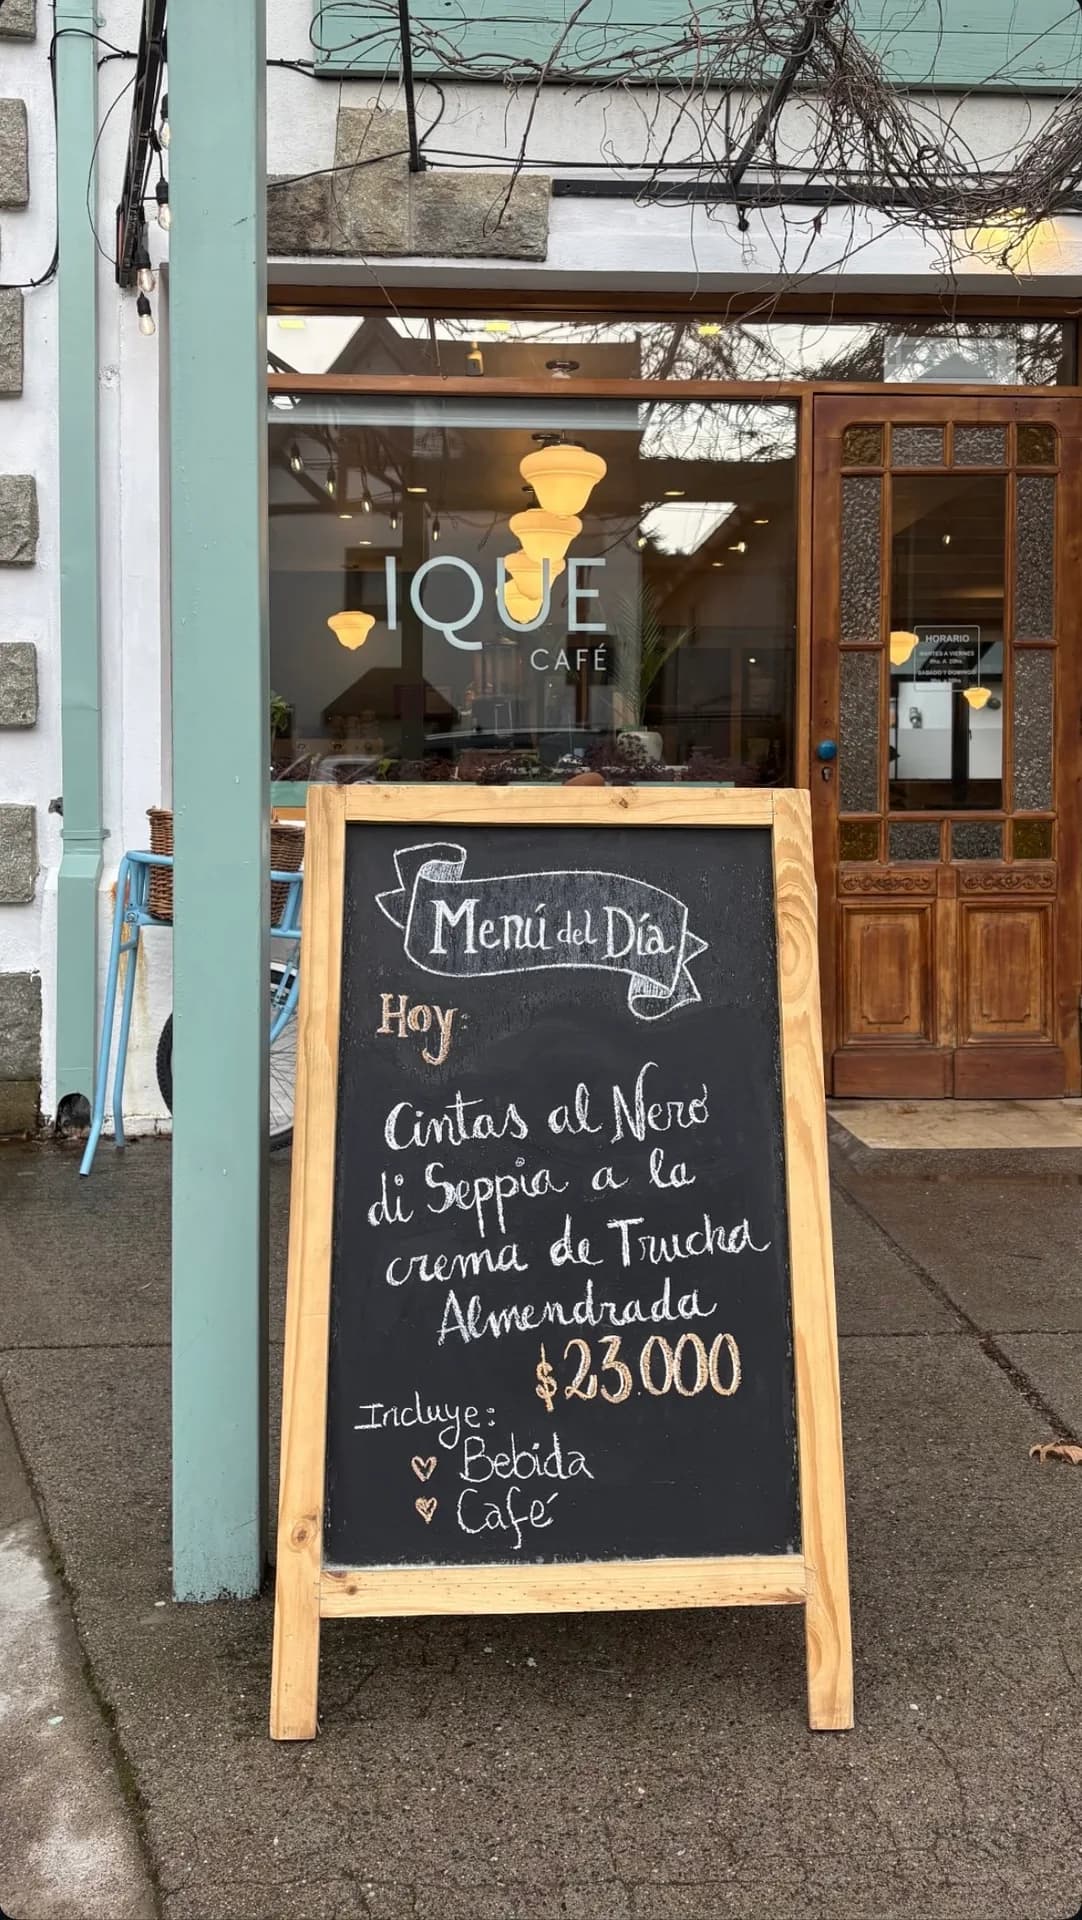 IQUE
CAFÉ
HORARIO
MARTES A VIERNES
SABADO Y DOMINGO
Menú del Día
Hoy:
Cintas al Nero
di Seppia a la
crema de Trucha
Almendrada
$23.000
Incluye:
Bebida
Café